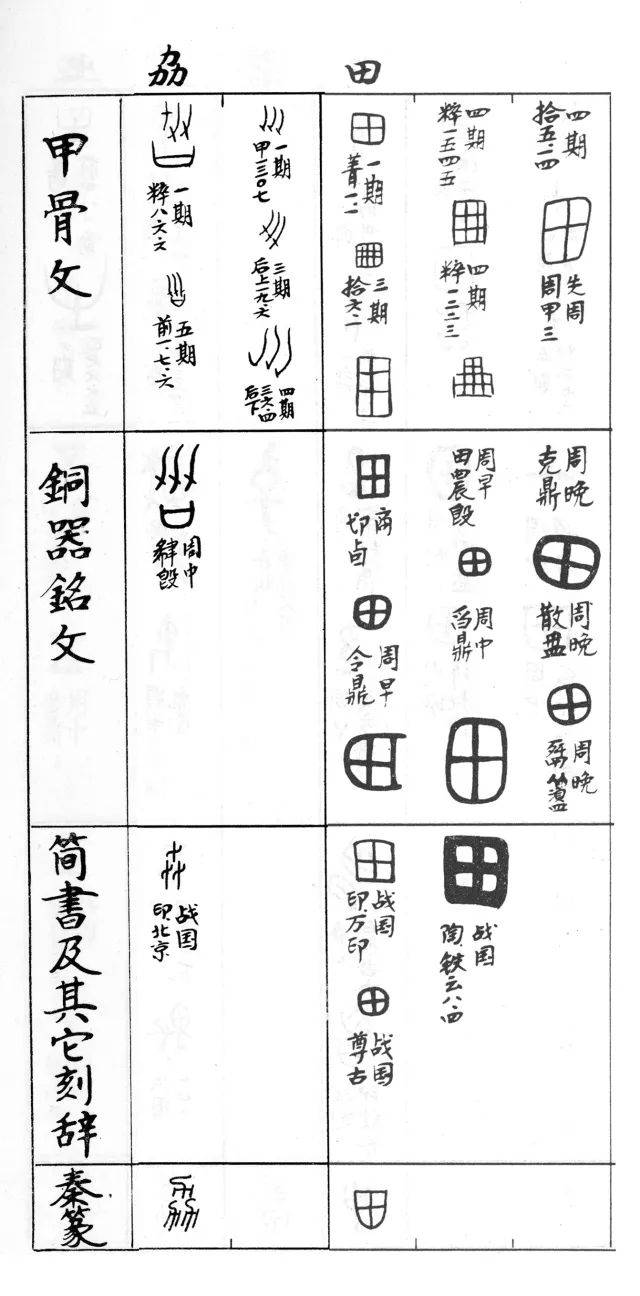 劦
田
甲骨文
一期
粹八六六
五期
前一·七·六
一期
甲二三〇七
三期
后上一九·六
四期
后下三六·四
一期
菁一·一
三期
拾六·一
四期
粹一五四五
四期
粹一二二三
四期
拾五·一四
先周
周甲三
銅器銘文
周中
㝬𣪘
商
切卣
周早
令鼎
周早
田農𣪘
周中
舀鼎
周晚
克鼎
周晚
散盤
周晚
簠
简書及其它刻辞
战国
印·北京
战国
印·万印
战国
尊古
战国
陶·铁云八·四
秦篆